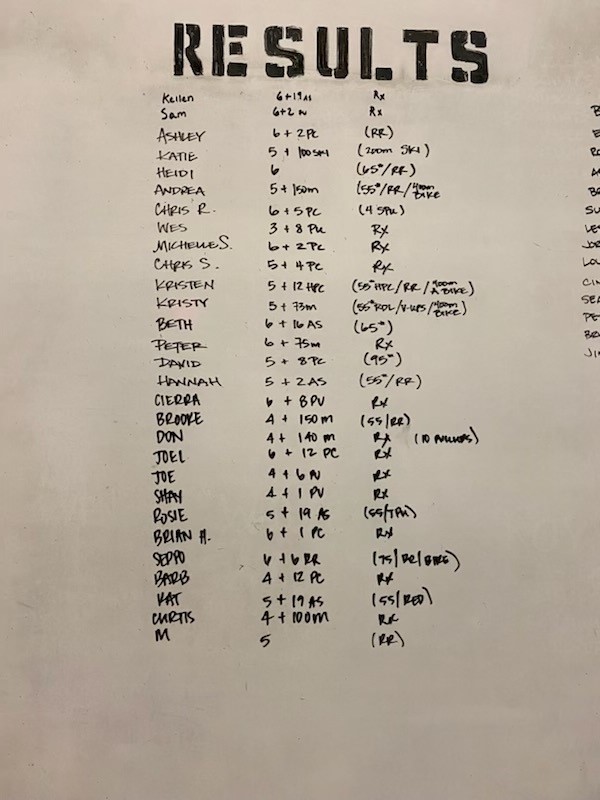 RESULTS
Kellen 6+19 AS Rx
Sam 6+2 Rx
ASHLEY 6 + 2 PC (RR)
KATIE 5 + 100 SKI (200m SKI)
HEIDI 6 (65#/RR)
ANDREA 5 + 150m (55#/RR/400m BIKE
CHRIS R. 6 + 5 PC (4 SPU)
WES 3 + 8 PU RX
MICHELLE S. 6 + 2 PC RX
CHRIS S. 5 + 4 PC RX
KRISTEN 5 + 12 HPC (55# HPC/RR/400m A BIKE)
KRISTY 5 + 73m (55# RDL/V-UPS/400m BIKE)
BETH 6 + 16 AS (65#)
PETER 6 + 75m RX
DAVID 5 + 8 PC (95#)
HANNAH 5 + 2 AS (55#/RR)
CIERRA 6 + 8 PU RX
BROOKE 4 + 150 m (55/RR)
DON 4 + 140 m RX (10 PULLUPS)
JOEL 6 + 12 PC RX
JOE 4 + 6 RX
SHAY 4 + 1 PU RX
ROSIE 5 + 19 AS (55/7PU)
BRIAN H. 6 + 1 PC RX
SEPPO 6 + 6 RR (75/RR/BIKE)
BARB 4 + 12 PC RX
KAT 5 + 19 AS (55/RED)
CURTIS 4 + 100m RX
M 5 (RR)